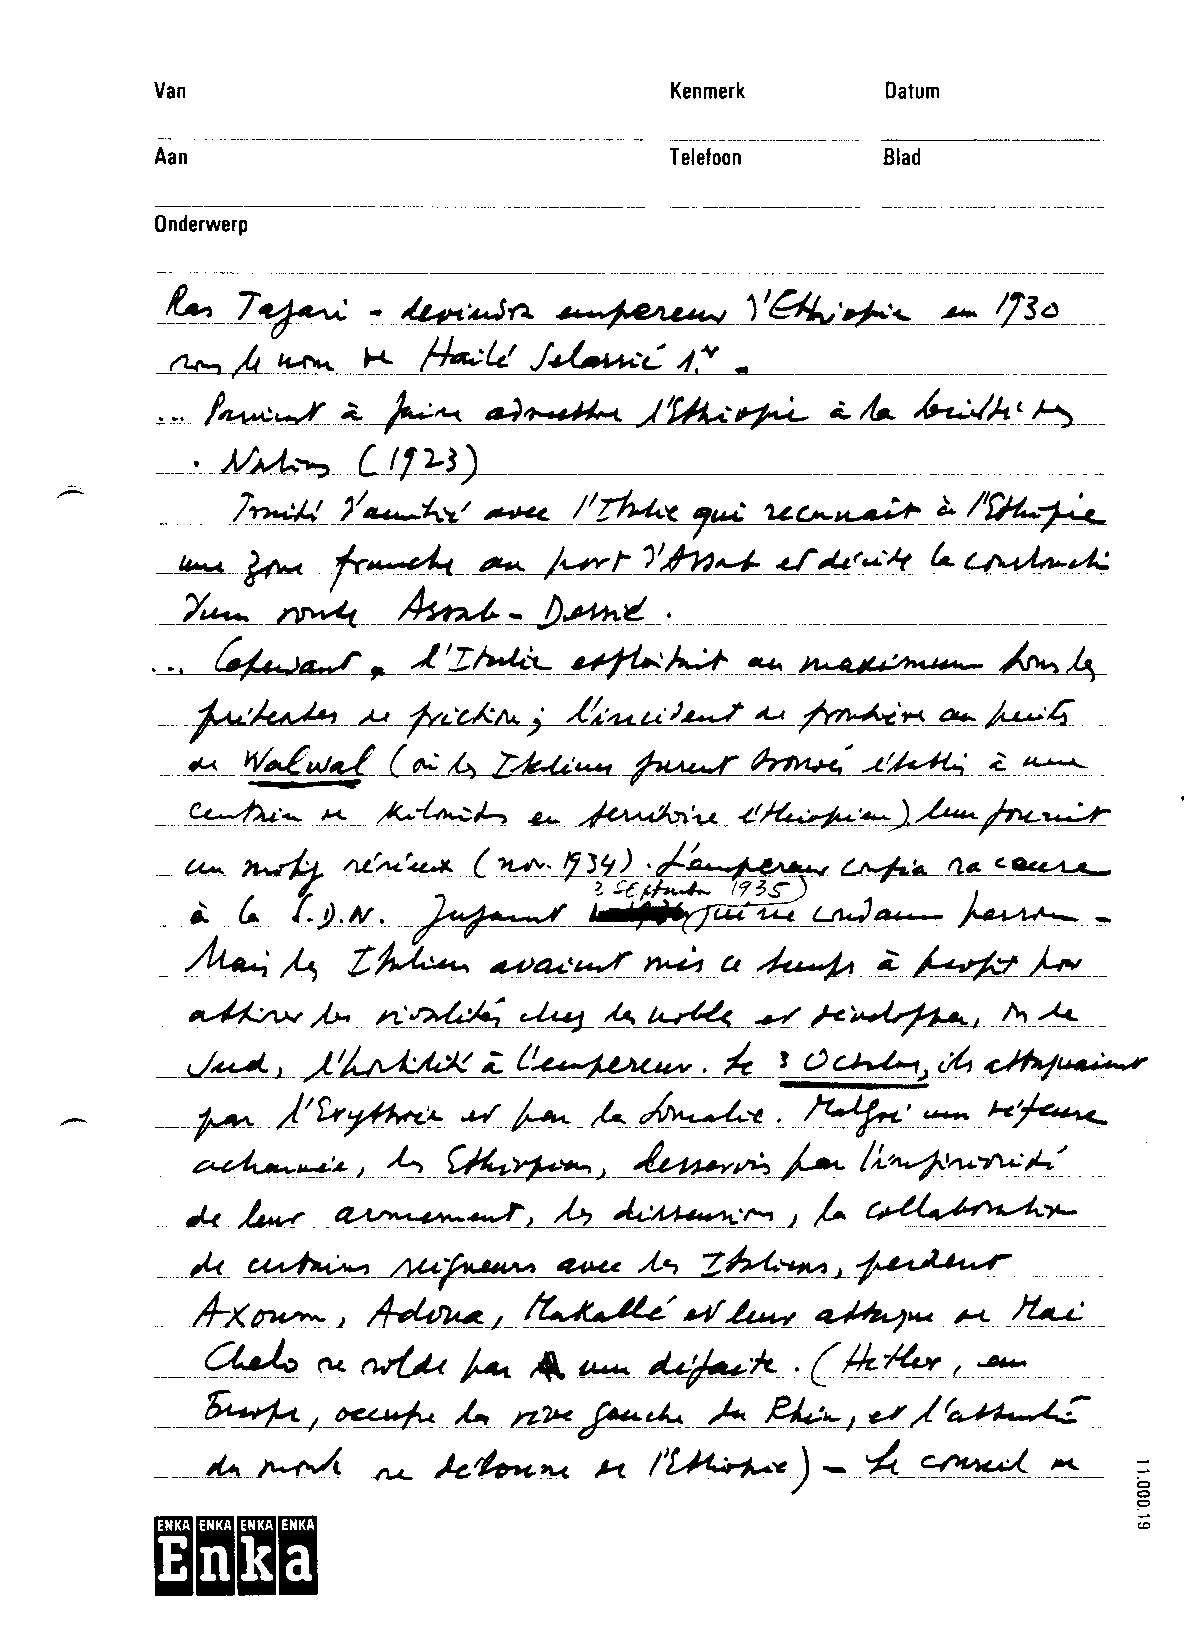 Van Kenmerk Datum
Aan Telefoon Blad
Onderwerp
Ras Tafari - deviendra empereur d'Ethiopie en 1930
sous le nom de Hailé Selassié 1er.
... Parvient à faire admettre l'Ethiopie à la Société des
. Nations (1923)
Traité d'amitié avec l'Italie qui reconnait à l'Ethiopie
une zone franche au port d'Assab et décide la construction
d'une route Assab - Dessié.
... Cependant, l'Italie exploitait au maximum tous les
prétextes de friction; l'incident de frontière au puits
de Walwal (où les Italiens furent trouvés établis à une
centaine de kilomètres en territoire éthiopien) leur fournit
un motif sérieux (nov. 1934). L'empereur confia sa cause
3 Septembre 1935)
à la S.D.N. Jugement qui ne condamne personne -
Mais les Italiens avaient mis ce temps à profit pour
attiser les rivalités chez les nobles et développer, ds le
Sud, l'hostilité à l'empereur. Le 3 Octobre, ils attaquaient
par l'Erythrée et par la Somalie. Malgré une défense
acharnée, les Ethiopiens, desservis par l'infériorité
de leur armement, les dissensions, la collaboration
de certains seigneurs avec les Italiens, perdent
Axoum, Adoua, Makallé et leur attaque de Mai
Chelo se solde par une défaite. (Hitler, en
Europe, occupe la rive gauche du Rhin, et l'attention
du monde se détourne de l'Ethiopie) - Le conseil de
ENKA ENKA ENKA ENKA
Enka
11.000.19